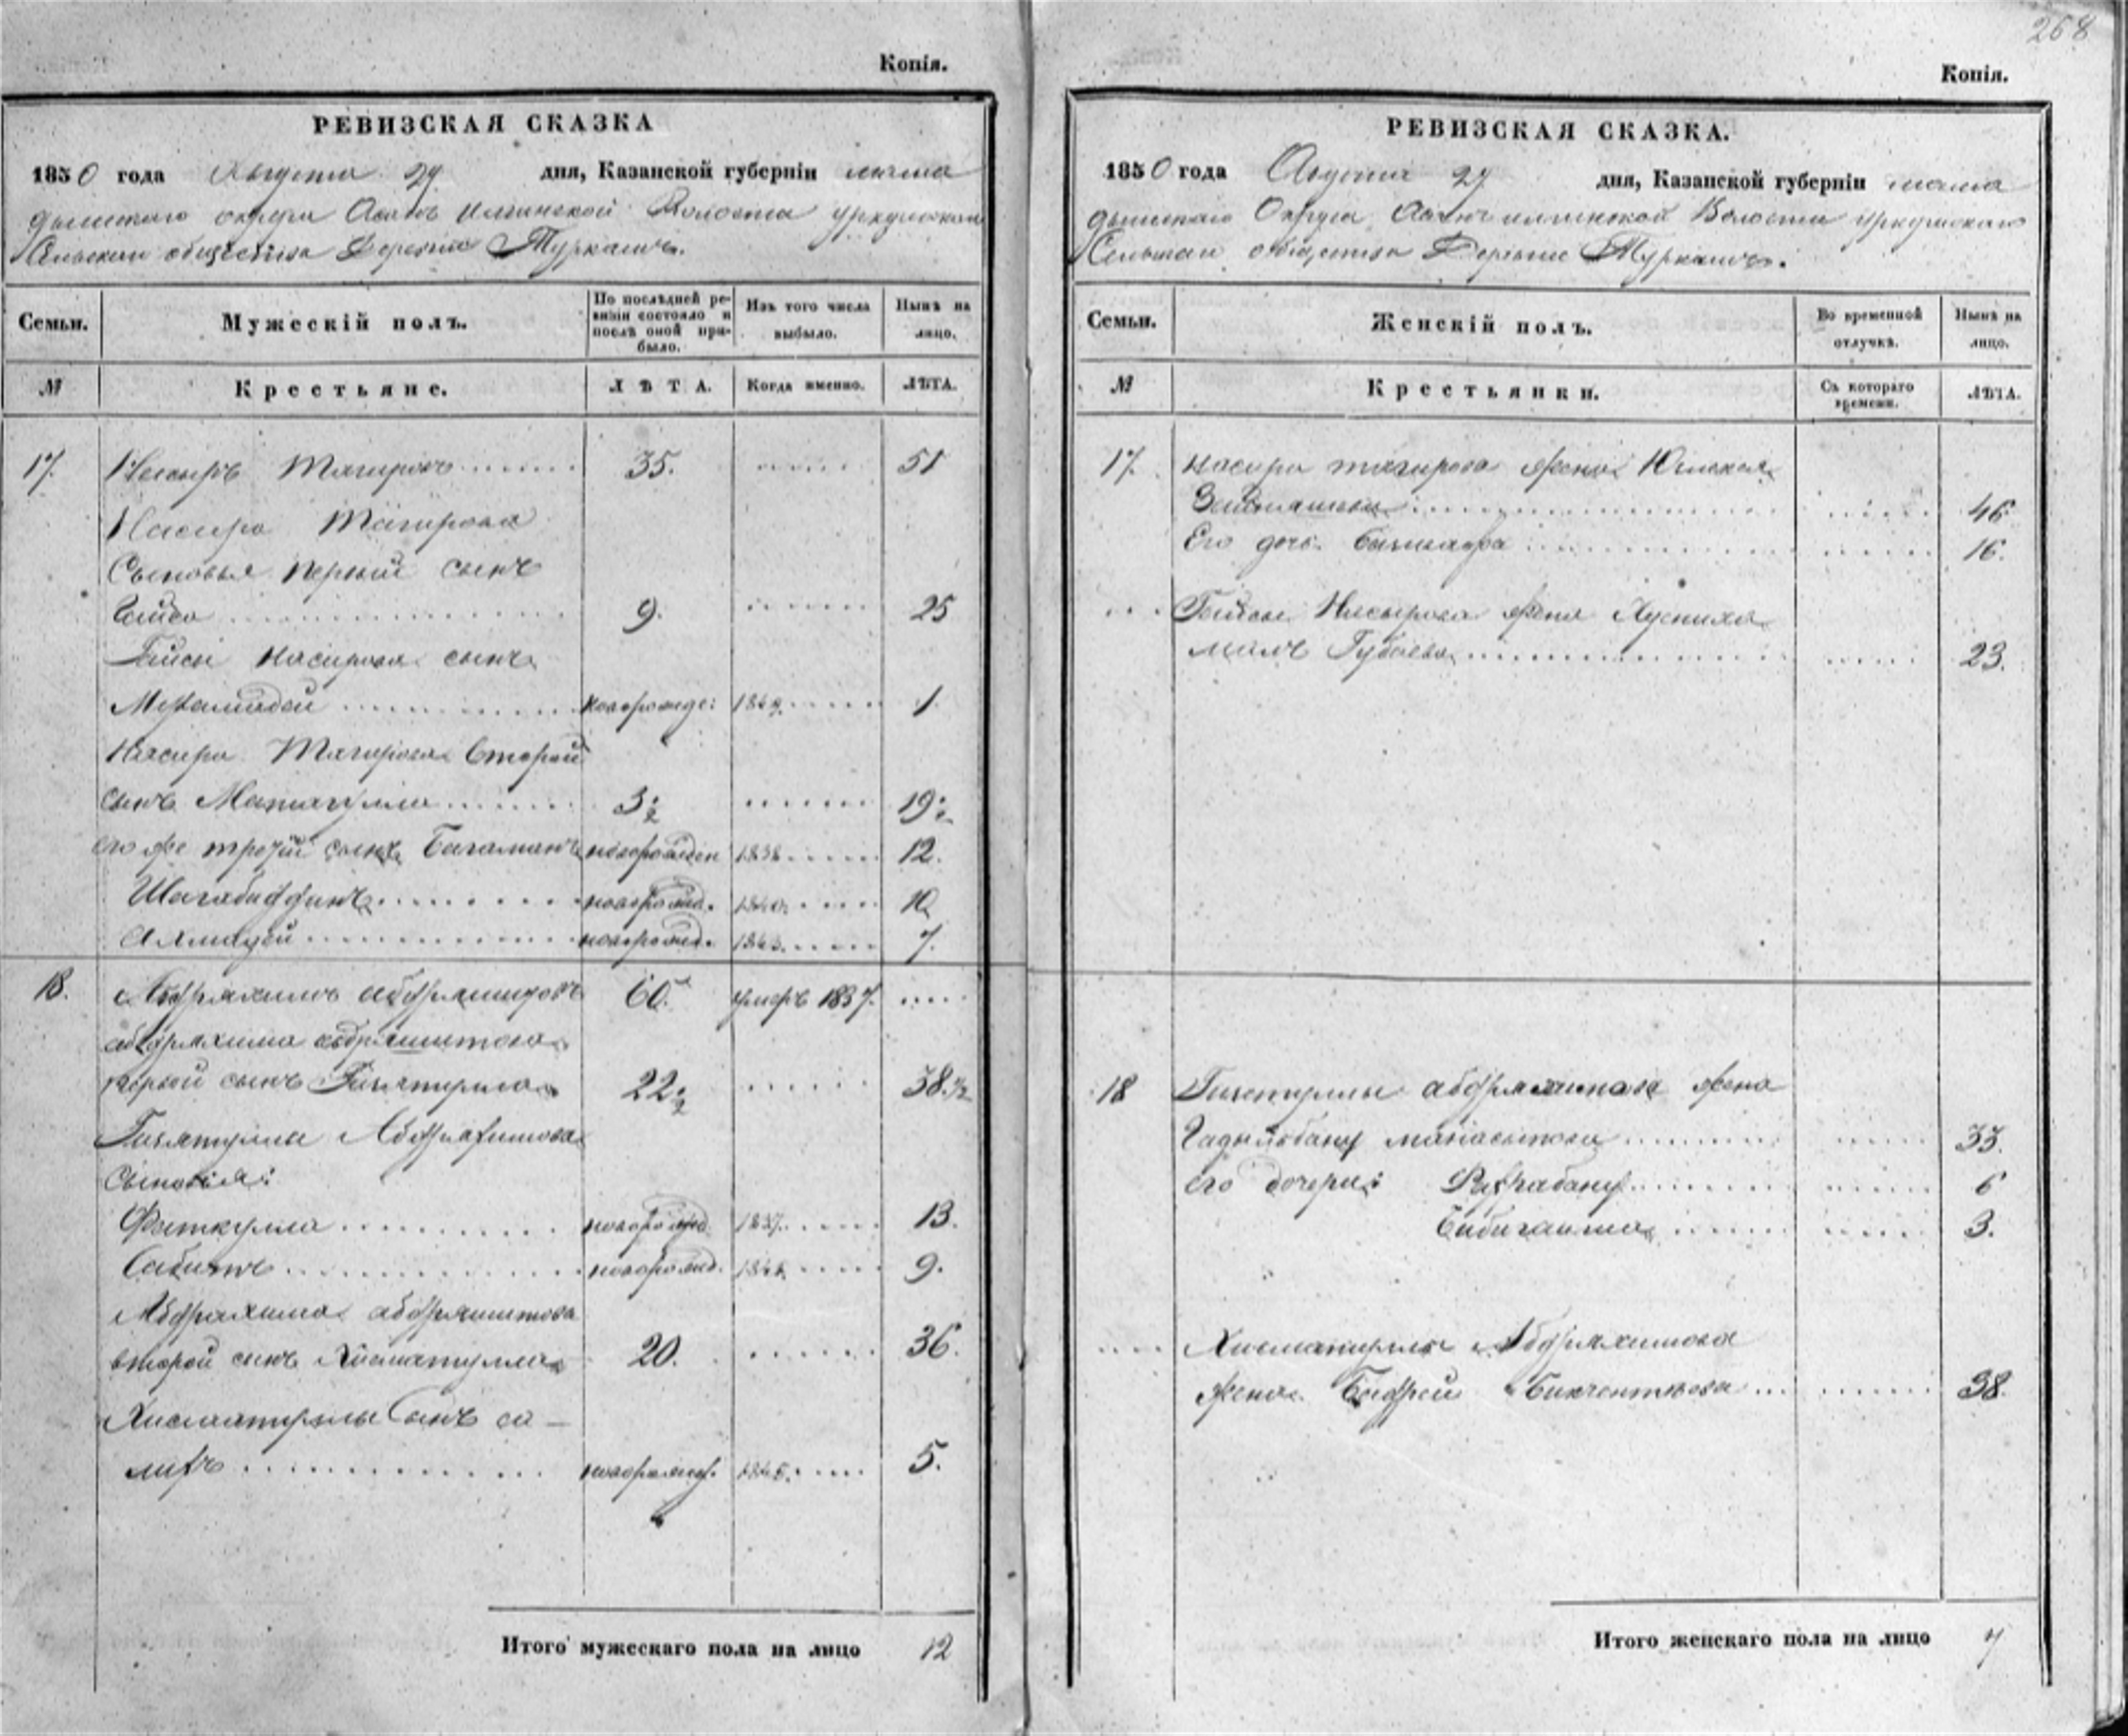 268
Копія.
РЕВИЗСКАЯ СКАЗКА
1850 года Августа 29 дня, Казанской губерніи мама
дышскаго округа Волости
Сельскаго общества Деревни Туркашъ.
Семьи. Мужескій полъ. По послѣдней ревизіи состояло и послѣ оной прибыло. Изъ того числа выбыло. Нынѣ на лицо.
№ Крестьяне. ЛѢТА. Когда именно. ЛѢТА.
17. Насыръ Тагировъ 35. 51
Насира Тагирова
Сыновья первый сынъ
Гайса 9. 25
Гайсы Насирова сынъ
новорожде: 1849 1
Насира Тагирова второй
сынъ 3½ 19½
его же третій сынъ новорожден 1838 12.
Шагабиддинъ новорожд. 1840 10
новорожд. 1843 7.
18. Абдряхимъ 60. умеръ 1837.
абдряхима абдряшитова
первой сынъ Гизятулла 22½ 38.½
Гизятуллы Абдряхимова
Сыновья:
Фаткулла новорожд 1837 13.
Сабитъ новорожд. 1841 9.
Абдряхима абдряшитова
второй сынъ Хисматулла 20. 36.
Хисматуллы Сынъ са-
лихъ новорожд. 1845. 5.
Итого мужескаго пола на лицо 12
Копія.
РЕВИЗСКАЯ СКАЗКА.
1850 года Августа 29 дня, Казанской губерніи мама
дышскаго Округа Волости
Сельскаго общества Деревни Туркашъ.
Семьи. Женскій полъ. Во временной отлучкѣ. Нынѣ на лицо.
№ Крестьянки. Съ котораго времени. ЛѢТА.
17. Насыра тагирова жена
46
Его дочь 16.
Гайсы Насырова жена Хусниха
малъ Губаева 23.
18 Гизетуллы абдряхимова жена
33.
его дочери: Фахрабану 6
3.
Хисматуллы Абдряхимова
жена 38.
Итого женскаго пола на лицо 7